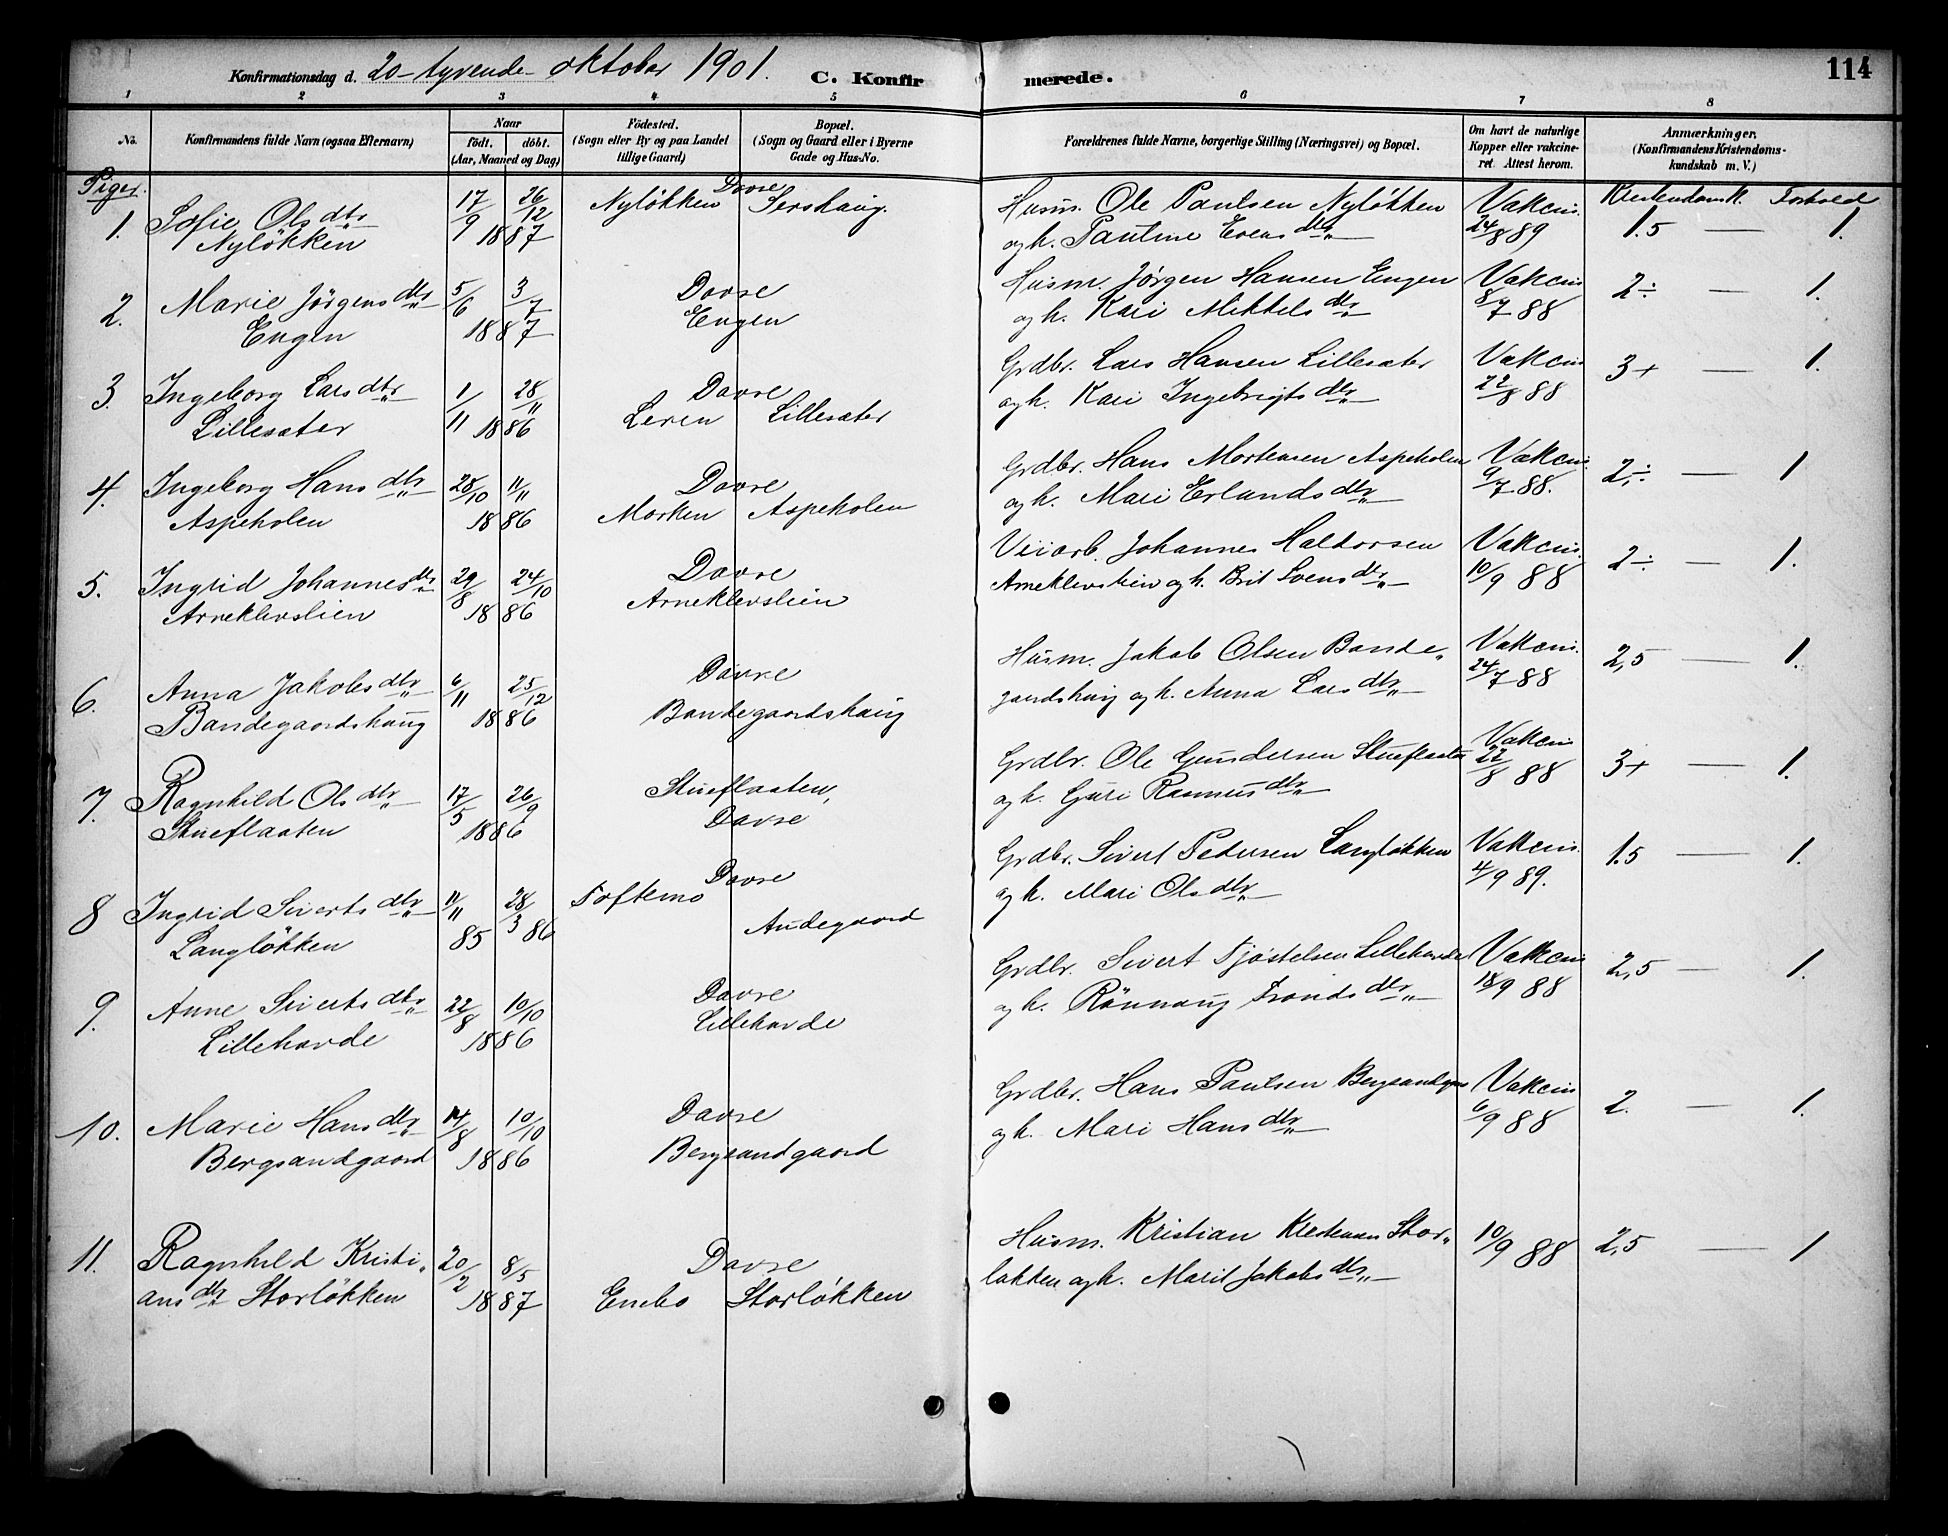 Konfirmationsdag d. 20-tyvende oktober 1901. C. Konfirmerede. 114
1 2 3 4 5 6 7 8
No. Konfirmandens fulde Navn (ogsaa Efternavn) Naar födt. döbt. (Aar, Maaned og Dag) Födested. (Sogn eller By og paa Landet tillige Gaard) Bopæl. (Sogn og Gaard eller i Byerne Gade og Hus-No.) Forældrenes fulde Navne, borgerlige Stilling (Næringsvei) og Bopæl. Om havt de naturlige Kopper eller vakcineret. Attest herom. Anmærkninger. (Konfirmandens Kristendomskundskab m. V.)
Piger.
Kristendomsk. Forhold
1. Sofie Olsdtr 17/9 26/12 Nyløkken Dovre Sershaug. Husm. Ole Paulsen Nyløkken Vakcin. 1.5 — 1.
Nyløkken 1887 og h. Pauline Evensdtr 24/8 89
2. Marie Jørgensdtr 5/6 3/7 Dovre Husm. Jørgen Hansen Engen Vakcin 2÷ — 1.
Engen 1887 Engen og h. Kari Mikkelsdtr 8/7 88
3. Ingeborg Larsdtr 1/11 28/11 Dovre Grdbr. Lars Hansen Lillesæter Vakcin 3+ — 1.
Lillesæter 1886 Leren Lillesæter og h. Kari Ingebrigtsdtr 22/8 88
4. Ingeborg Hansdtr 28/10 11/11 Dovre Grdbr. Hans Mortensen Aspeholen Vakcin. 2,÷ — 1
Aspeholen 1886 Morken Aspeholen og h. Mari Erlandsdtr 9/7 88.
5. Ingrid Johannesdtr 29/8 24/10 Dovre Veiarb. Johannes Haldorsen Vakcin. 2÷ — 1.
Arneklevslien 1886 Arneklevslien Arneklevslien og h. Brit Svensdtr 10/9 88
6. Anna Jakobsdtr 6/11 25/12 Dovre Husm. Jakob Olsen Bande- Vakcin. 2,5 — 1.
Bandegaardshaug 1886 Bandegaardshaug gaardshaug og h. Anna Larsdtr 24/7 88
7. Ragnhild Olsdtr 17/5 26/9 Stueflaaten, Grdbr. Ole Gundersen Stueflaaten Vakcin 3+ — 1.
Stueflaaten 1886 Dovre og h. Guri Rasmusdtr 22/8 88
8 Ingrid Sivertsdtr 11/11 28/3 Toftemo Dovre Grdbr. Sivert Pedersen Langløkken Vakcin. 1.5 — 1.
Langløkken 85 86 Audegaard og h. Mari Olsdtr 4/9 89.
9. Anne Sivertsdtr 22/8 10/10 Dovre Grdbr. Sivert Tjøstelsen Lillehovde Vakcin 2,5 — 1.
Lillehovde 1886 Lillehovde og h. Rönnaug Trondsdtr 18/9 88
10. Marie Hansdtr 14/8 10/10 Dovre Grdbr. Hans Paulsen Bergsandgard Vakcin 2. — 1.
Bergsandgaard 1886 Bergsandgaard og h. Mari Hansdtr 6/9 88
11. Ragnhild Kristi- 20/2 8/5 Dovre Husm. Kristian Kristensen Stor- 10/9 88 2,5 — 1
ansdtr Storløkken 1887 Enebo Storløkken løkken og h. Marit Jakobsdtr